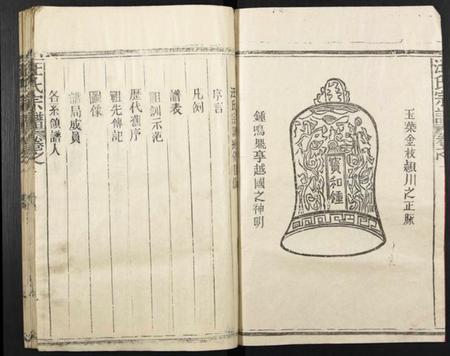 玉葉金枝潁川之正脈
寶和鐘
鍾鳴廟享越國之神明
汪氏宗譜
序言
凡例
譜表
祖訓示範
歷代舊序
祖先傳記
圖像
譜局成員
各系領譜人
汪氏宗譜卷之